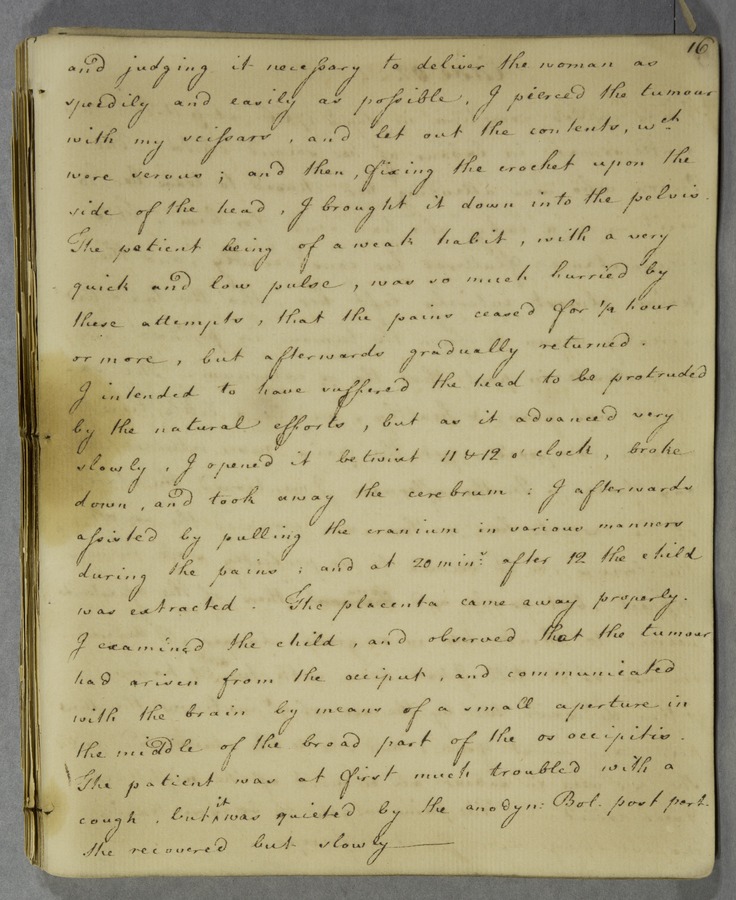 16
and judging it necessary to deliver the woman as
speedily and easily as possible, I pierced the tumour
with my scissars, and let out the contents, wch
were serous; and then, fixing the crochet upon the
side of the head, I brought it down into the pelvis.
The patient being of a weak habit, with a very
quick and low pulse, was so much hurried by
these attempts, that the pains ceased for 1/2 hour
or more, but afterwards gradually returned.
I intended to have suffered the head to be protruded
by the natural efforts, but as it advanced very
slowly, I opened it betwixt 11 & 12 o'clock, broke
down, and took away the cerebrum: I afterwards
assisted by pulling the cranium in various manners
during the pains: and at 20 mins. after 12 the child
was extracted. The placenta came away properly.
I examined the child, and observed that the tumour
had arisen from the occiput, and communicated
with the brain by means of a small aperture in
the middle of the broad part of the os occipitis.
The patient was at first much troubled with a
cough, but it was quieted by the anodyn: Bol. post part.
She recovered but slowly